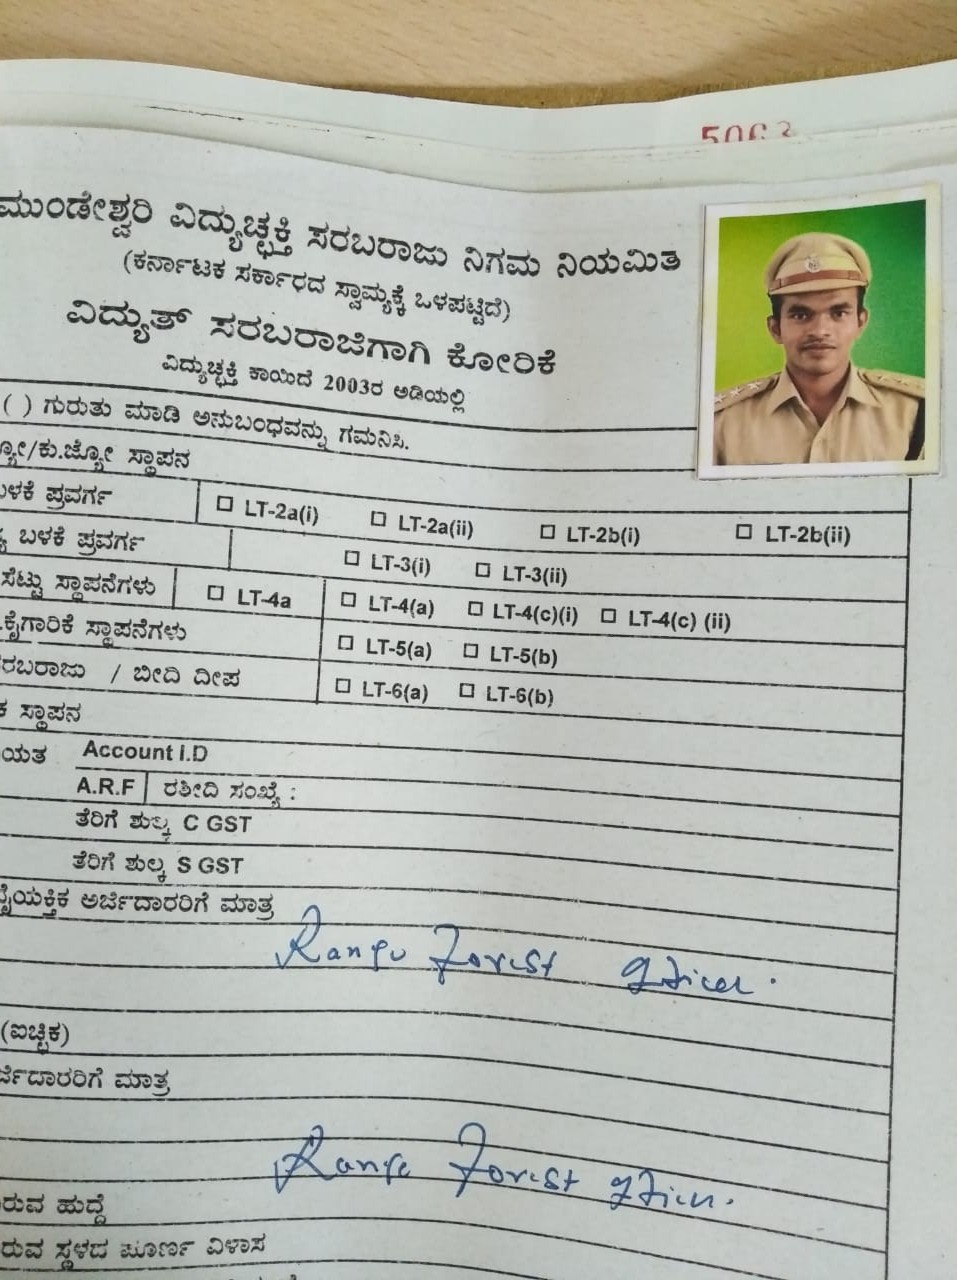 ಮುಂಡೇಶ್ವರಿ ವಿದ್ಯುಚ್ಛಕ್ತಿ ಸರಬರಾಜು ನಿಗಮ ನಿಯಮಿತ
(ಕರ್ನಾಟಕ ಸರ್ಕಾರದ ಸ್ವಾಮ್ಯಕ್ಕೆ ಒಳಪಟ್ಟಿದೆ)
ವಿದ್ಯುತ್ ಸರಬರಾಜಿಗಾಗಿ ಕೋರಿಕೆ
ವಿದ್ಯುಚ್ಛಕ್ತಿ ಕಾಯಿದೆ 2003ರ ಅಡಿಯಲ್ಲಿ
( ) ಗುರುತು ಮಾಡಿ ಅನುಬಂಧವನ್ನು ಗಮನಿಸಿ.
ಜ್ಯೋ/ಕು.ಜ್ಯೋ ಸ್ಥಾಪನ
ಬಳಕೆ ಪ್ರವರ್ಗ LT-2a(i) LT-2a(ii) LT-2b(i) LT-2b(ii)
ಬಳಕೆ ಪ್ರವರ್ಗ LT-3(i) LT-3(ii)
ಸೆಟ್ಟು ಸ್ಥಾಪನೆಗಳು LT-4a LT-4(a) LT-4(c)(i) LT-4(c) (ii)
ಕೈಗಾರಿಕೆ ಸ್ಥಾಪನೆಗಳು LT-5(a) LT-5(b)
ಸರಬರಾಜು / ಬೀದಿ ದೀಪ LT-6(a) LT-6(b)
ಕ ಸ್ಥಾಪನ
ಯತ Account I.D
A.R.F ರಶೀದಿ ಸಂಖ್ಯೆ :
ತೆರಿಗೆ ಶುಲ್ಕ C GST
ತೆರಿಗೆ ಶುಲ್ಕ S GST
ವೈಯಕ್ತಿಕ ಅರ್ಜಿದಾರರಿಗೆ ಮಾತ್ರ
Range Forest Officer.
(ಐಚ್ಛಿಕ)
ರ್ಜಿದಾರರಿಗೆ ಮಾತ್ರ
Range Forest Officer.
ರುವ ಹುದ್ದೆ
ರುವ ಸ್ಥಳದ ಪೂರ್ಣ ವಿಳಾಸ